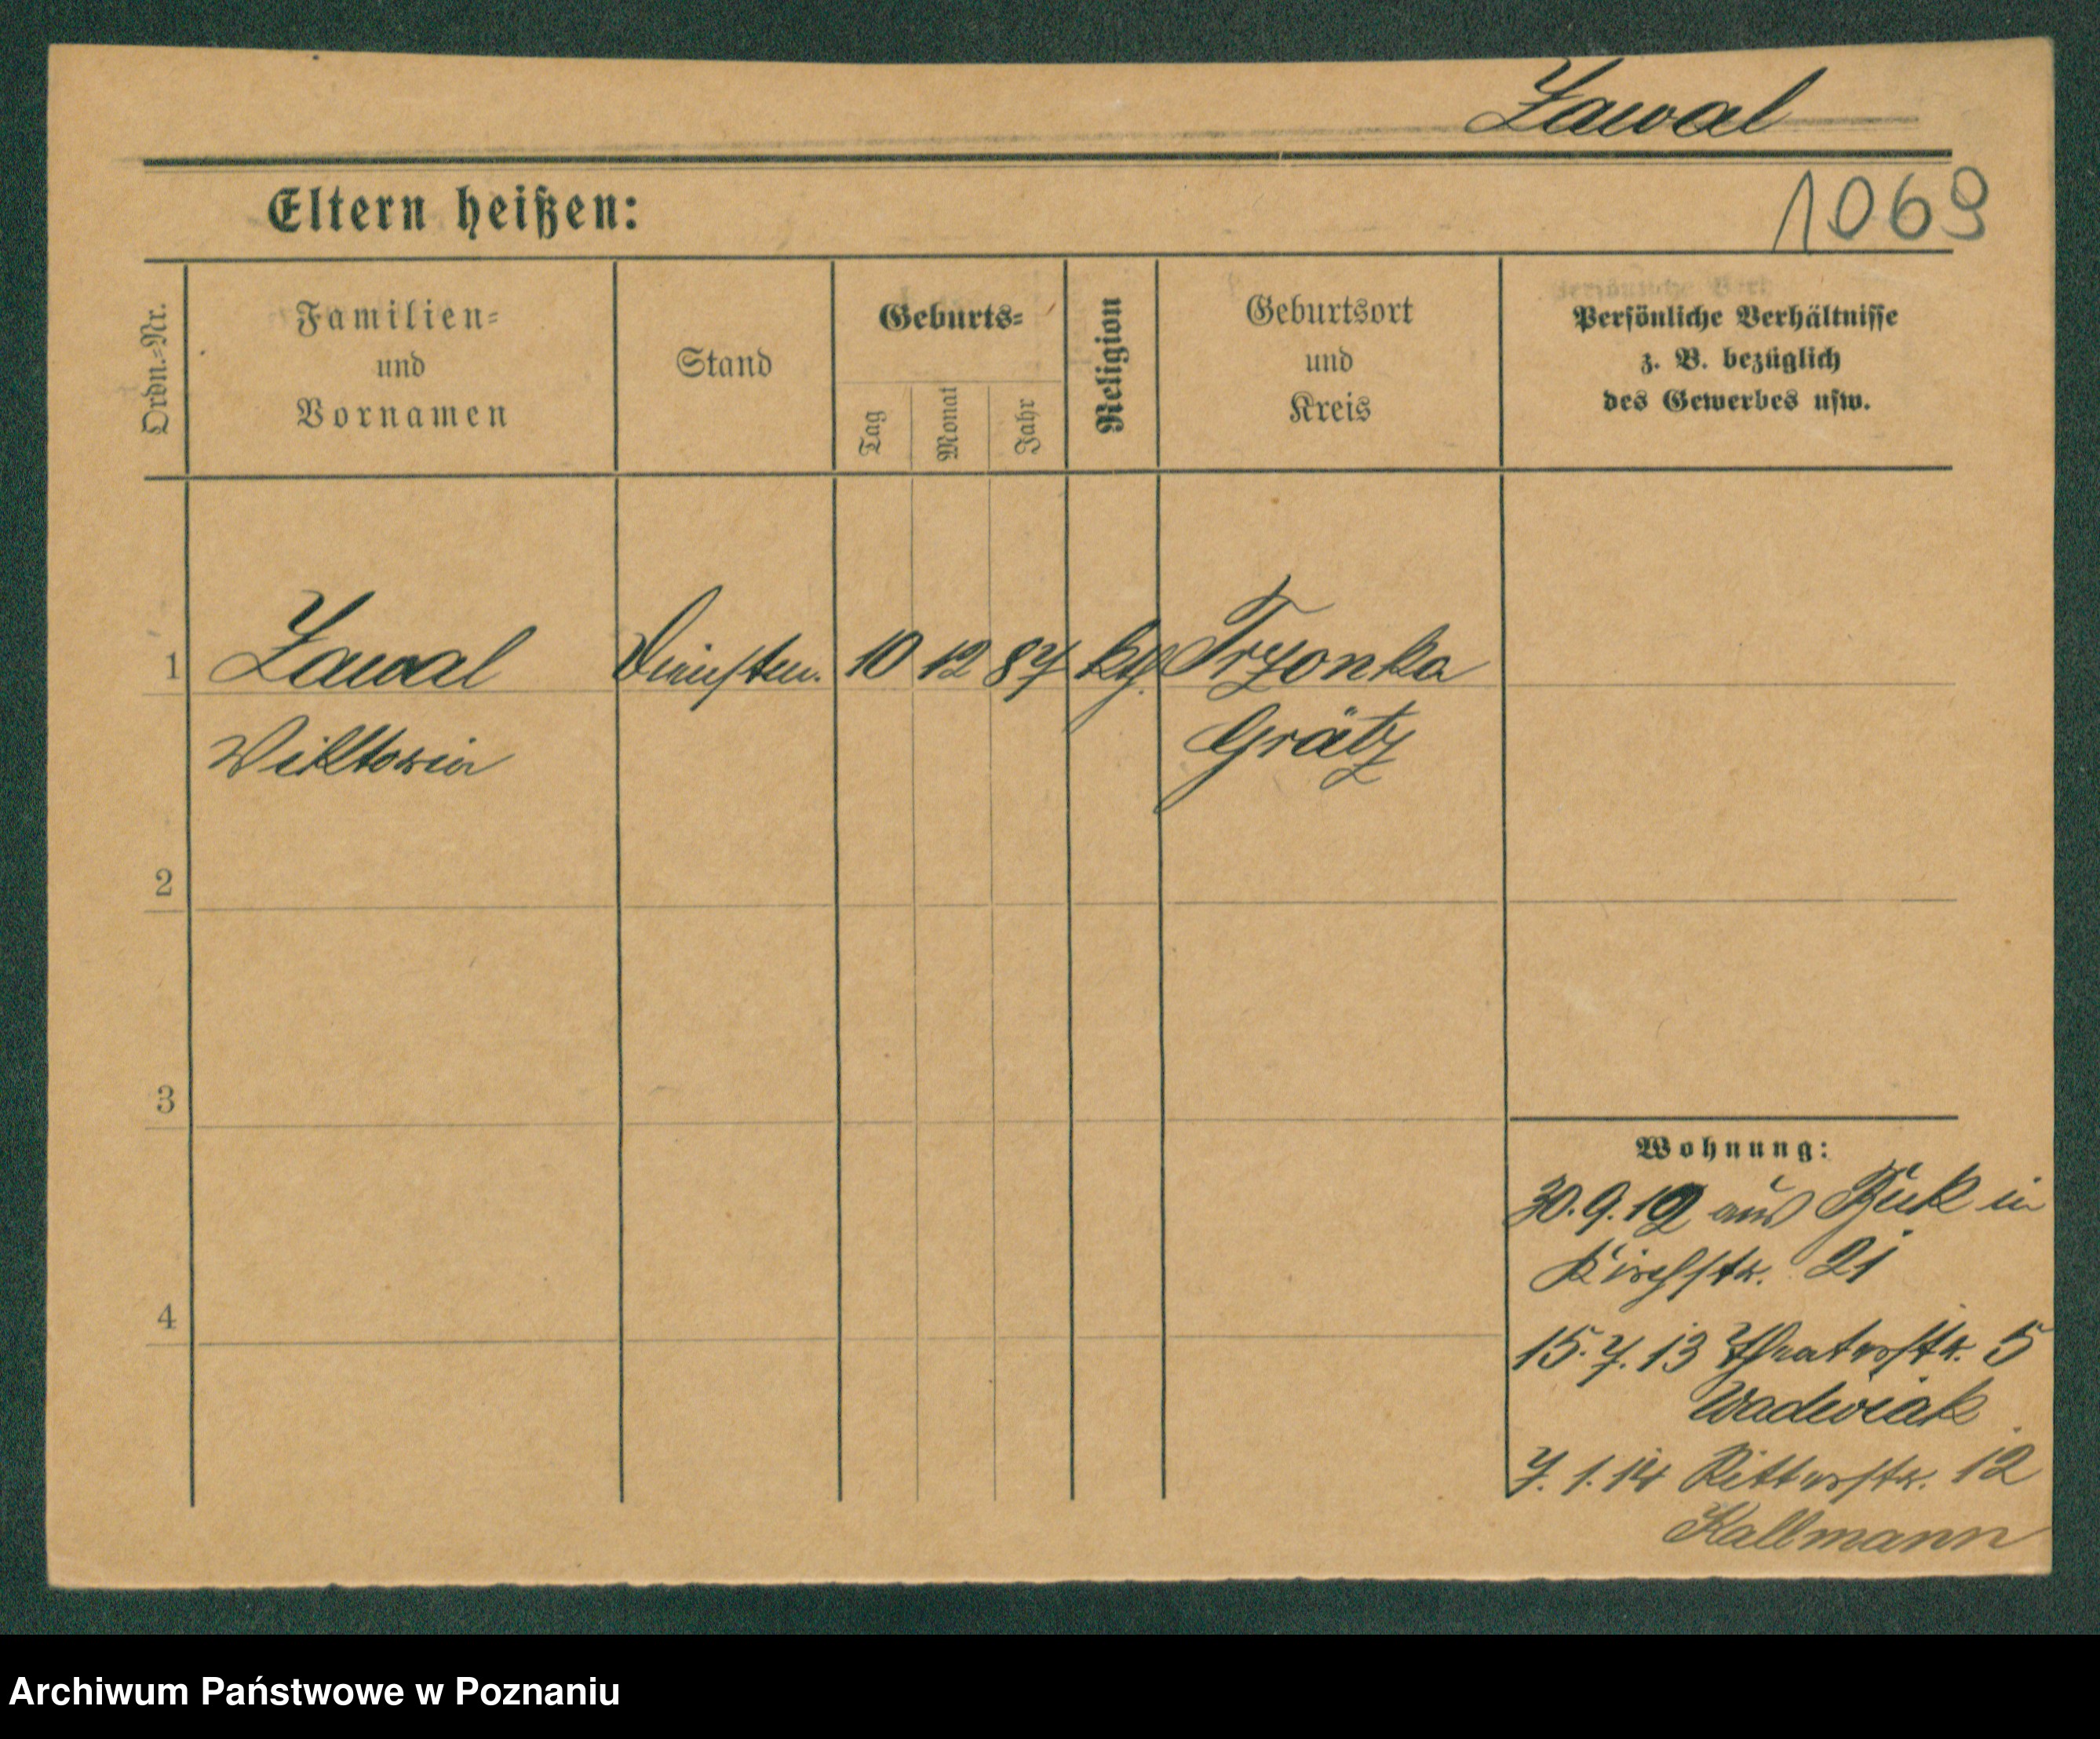 Zawal
Eltern heißen:
1069
Ordn.-Nr.
Familien-
und
Vornamen
Stand
Geburts-
Tag
Monat
Jahr
Religion
Geburtsort
und
Kreis
Persönliche Verhältnisse
z. B. bezüglich
des Gewerbes usw.
1 Zawal 10 12 87 kth. Trzonka
Wiktoria Grätz
2
3
4
Wohnung:
30.9.12 aus Buk in
Kirchstr. 21
15.7.13 Theaterstr. 5
Wadwiak
7.1.14 Ritterstr. 12
Kallmann
Archiwum Państwowe w Poznaniu